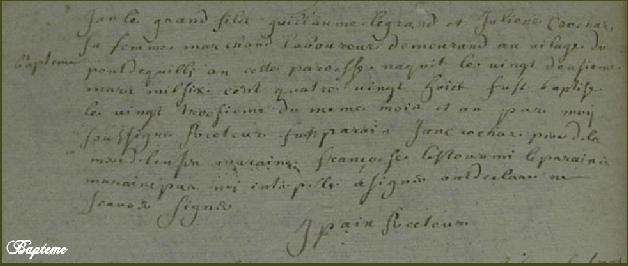 Jan le grand fils guillaume legrand et Julienne Cochar
sa femme marchand laboureur demeurand au vilage du
Bapteme
pont de quilli an cette paroesse naquit le vingt deusieme
mars mil six cent quatre vingt huict fust baptise
le vingt troesieme du meme mois et an par moy
soussigne Recteur fust parain Jan cochar
maraine francoise le parain
maraine par moi interpelle a signer ont declare ne
scavoir signer
J pain Recteur
Bapteme